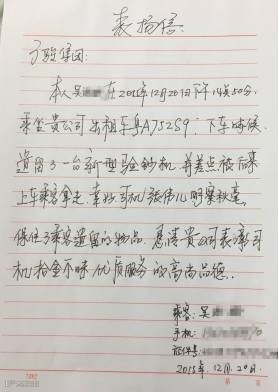 表扬信
集团:
本人吴 在2015年12月20日下午14点50分
乘坐贵公司出租车粤A75259;下车时候
遗留了一台新型验钞机,并差点被后来
上车乘客拿走,幸好司机张伟儿明察秋毫
保住了乘客遗留的物品。恳请贵公司表彰司
机拾金不昧优质服务的高尚品德。
乘客:吴
手机:
2015年12月20日